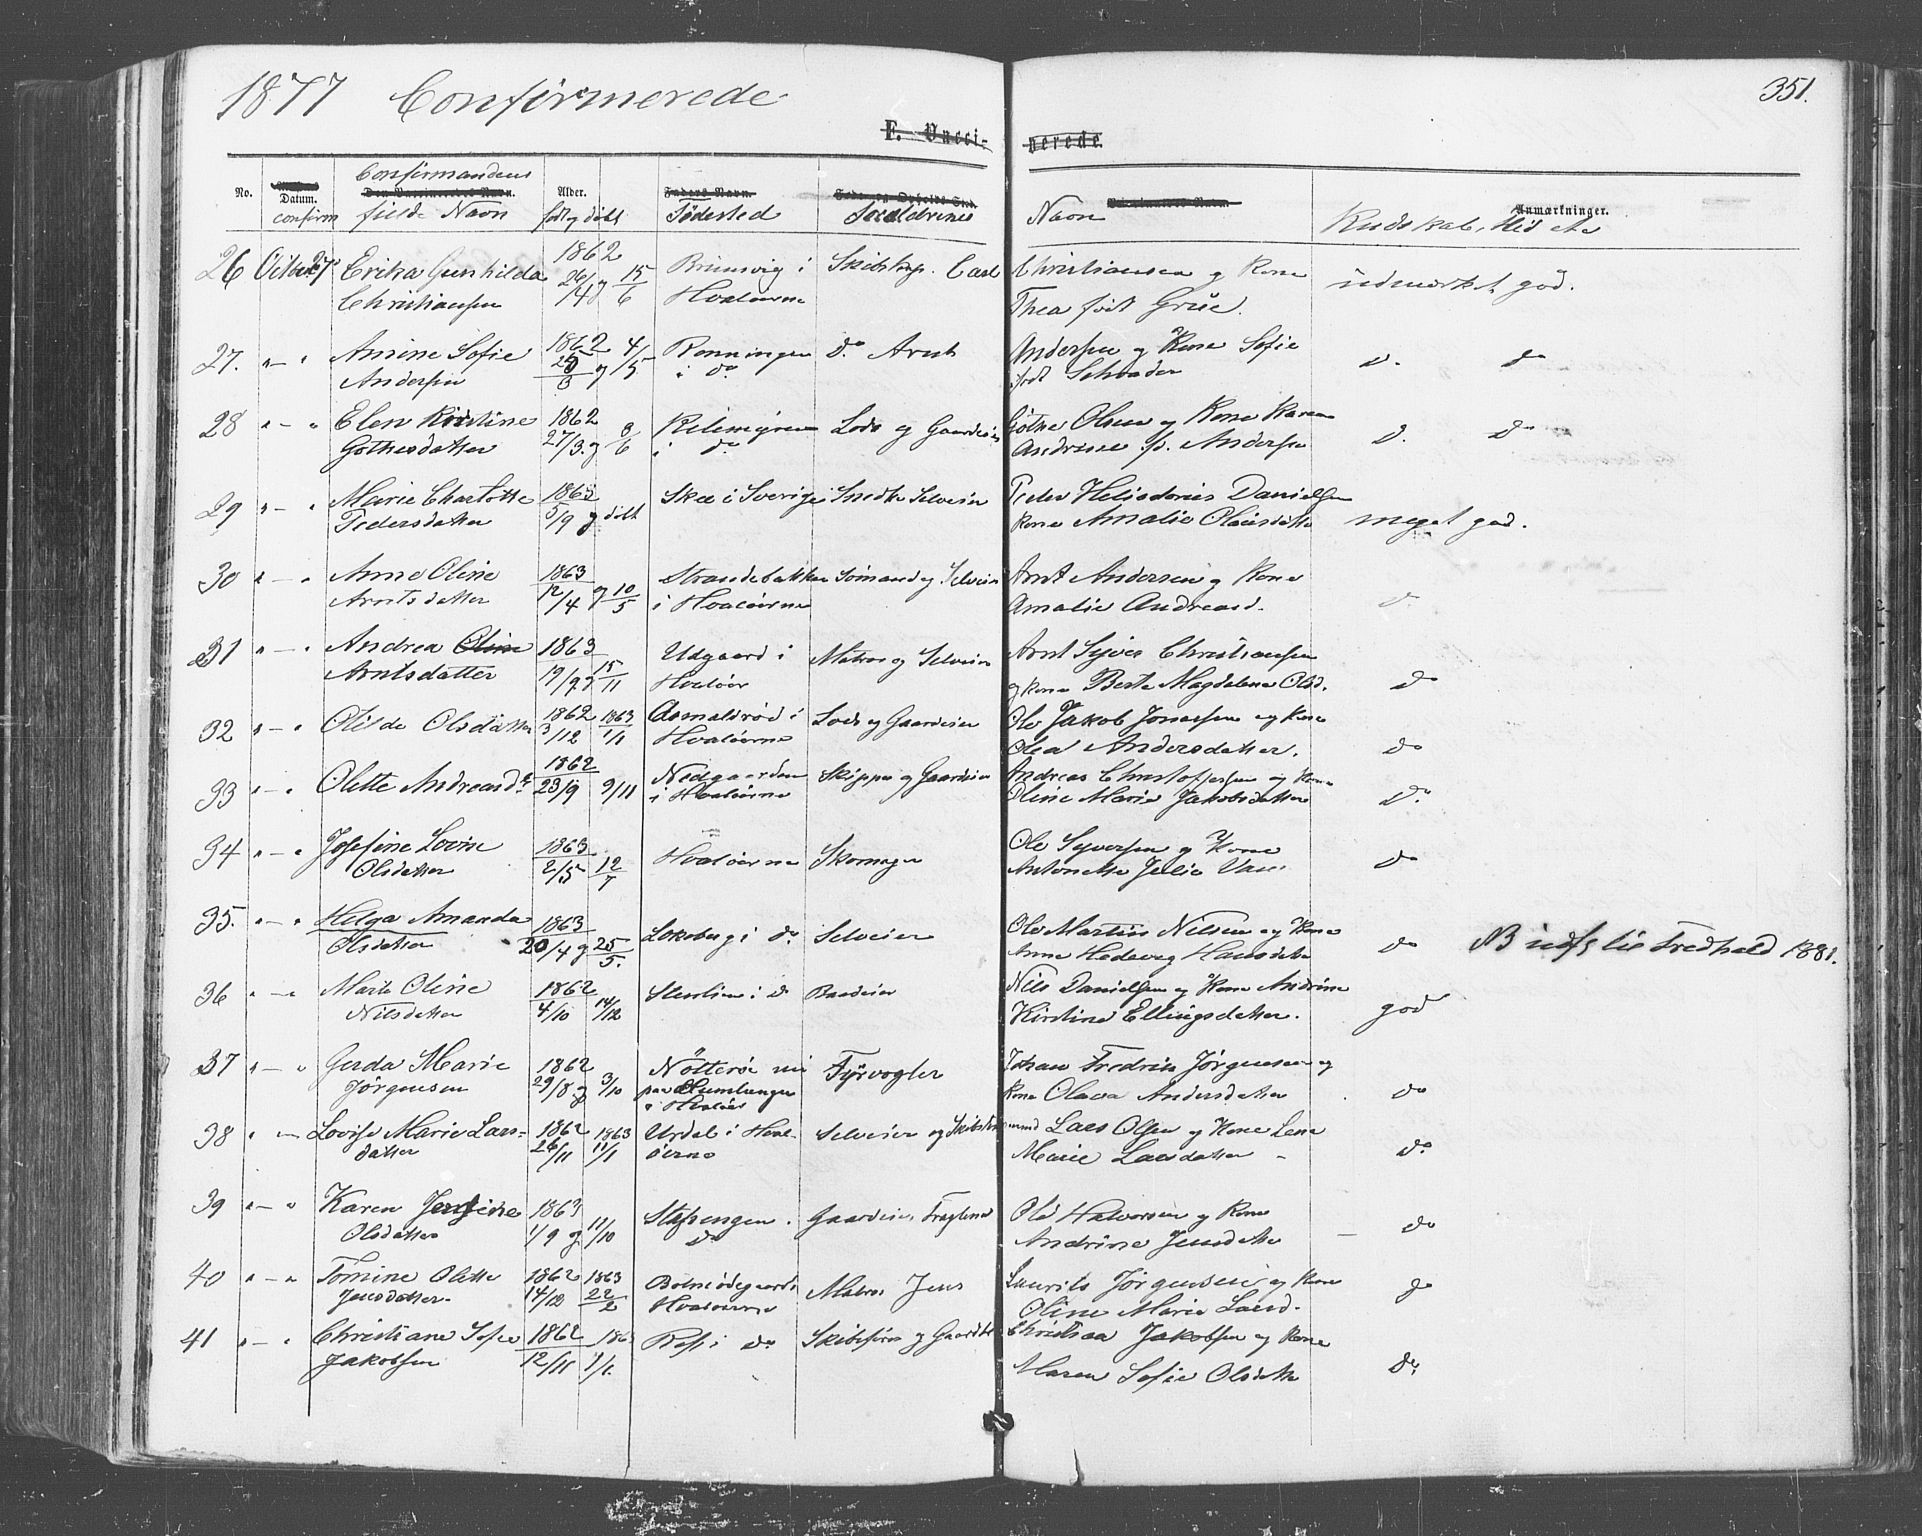 1877 Confirmerede 351.
F. Vacci- nerede.
Confirmandens
No. Datum. Den Vaccineredes Navn. Alder. Faders Navn. Anmærkninger.
confirm fulde Navn født og døbt Födested Forældrenes Navn Kundskab, Flid etc
26 Octbr 7 Erika Gunhilda 1862 26/4 og 15/6 Brunsvig i Skibskap. Carl Christiansen og Kone udmærket god.
Christiansen Hvaløerne Thea født Grüe.
27. " — " Anine Sofie 1862 4/5 Rønningen do Arnt Andersen og Kone Sofie do do
Andersen i do født Schrøder
28 " — " Elen Kirstine 1862 27/3 og 8/6 Lods og Gaardeier Göthe Olsen og Kone Karen do do
Gothesdatter i do Andrine f. Andersen
29 " — " Marie Charlotte 1863 5/9 og døbt Skee i Sverige Snedk Selveier Peder Heliodorus Danielsen
Pedersdatter Kone Amalie Olausdatter meget god.
30 " — " Anne Oline 1863 12/4 og 10/5 Strandebakken Sömand og Selveier Arnt Andersen og Kone
Arntsdatter i Hvaløerne Amalie Andreasd. do
31 " — " Andrea Oline 1863 19/9 15/11 Udgaard i Matros og Selveier Arnt Syver Christiansen
Arntsdatter Hvaløer og Kone Berte Magdalene Olsd. do
32 " — " Olilde Olsdatter 1862 3/12 1863 1/1 Asmaldrød i Lods og Gaardeier Ole Jakob Jonassen og Kone
Hvaløerne Olea Andersdatter. do
33 " — " Olette Andreasdr 1862 23/9 9/11 Nedgaarden Skipper og Gaardeier Andreas Christofersen og Kone
i Hvaløerne Oline Marie Jakobsdatter do
34 " — " Josefine Lovise 1863 2/5 12/7 Hvaløerne Skomager Ole Syversen og Kone do
Olsdatter Antonette Julie
35. " — " Helga Amanda 1863 20/4 og 25/5. Lokeberg i do Selveier Ole Martin Nilsen og Kone
Olsdatter Anne Hedevig Hansdatter do NB udfl. til Fredhald 1881.
36 " — " Marte Oline 1862 4/10 14/12 i do Baadeier Nils Danielsen og Kone Andrine
Nilsdatter Kirstine Ellingsdatter. god
37 " — " Gerda Marie 1862 29/8 og 3/10 Nötterö nu Fyrvogter Johan Fredrik Jørgensen og
Jørgensen paa Humlungen i Hvaløer Kone Olava Andersdatter do
38 " — " Lovise Marie Lars- 1862 26/11 1863 11/1 Urdal i Hval- Selveier og Skibstømmermd Lars Olsen og Kone Lene
datter øerne Marie Larsdatter - do
39 " — " Karen Josefine 1863 1/9 og 11/10 Gaardeier Ole Halvorsen og Kone
Olsdatter do Andrine Jensdatter do
40 " — " Tomine Olette 1862 14/12 1863 22/2 Bølsødegaards Matros Jens Laurits Jørgensen og Kone do
Jensdatter Hvaløerne Oline Marie Larsd.
41 " — " Christiane Sofie 1862 12/11 1863 1/1 i do Skibsfører og Gaardbr Christian Jakobsen og Kone
Jakobsen Maren Sofie Olsdatter do